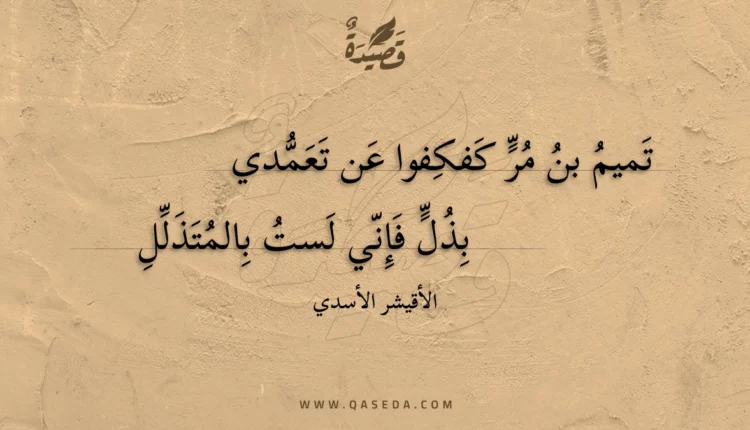 قَصِيْدَةٌ
تَميمُ بنُ مُرٍّ كَفكِفوا عَن تَعَمُّدي
بِذُلٍّ فَإِنّي لَستُ بِالمُتَذَلِّلِ
الأقيشر الأسدي
WWW.QASEDA.COM